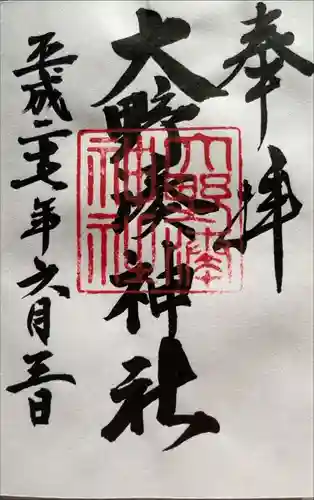 奉拝
大野湊神社
平成二十七年六月三日
大野湊神社